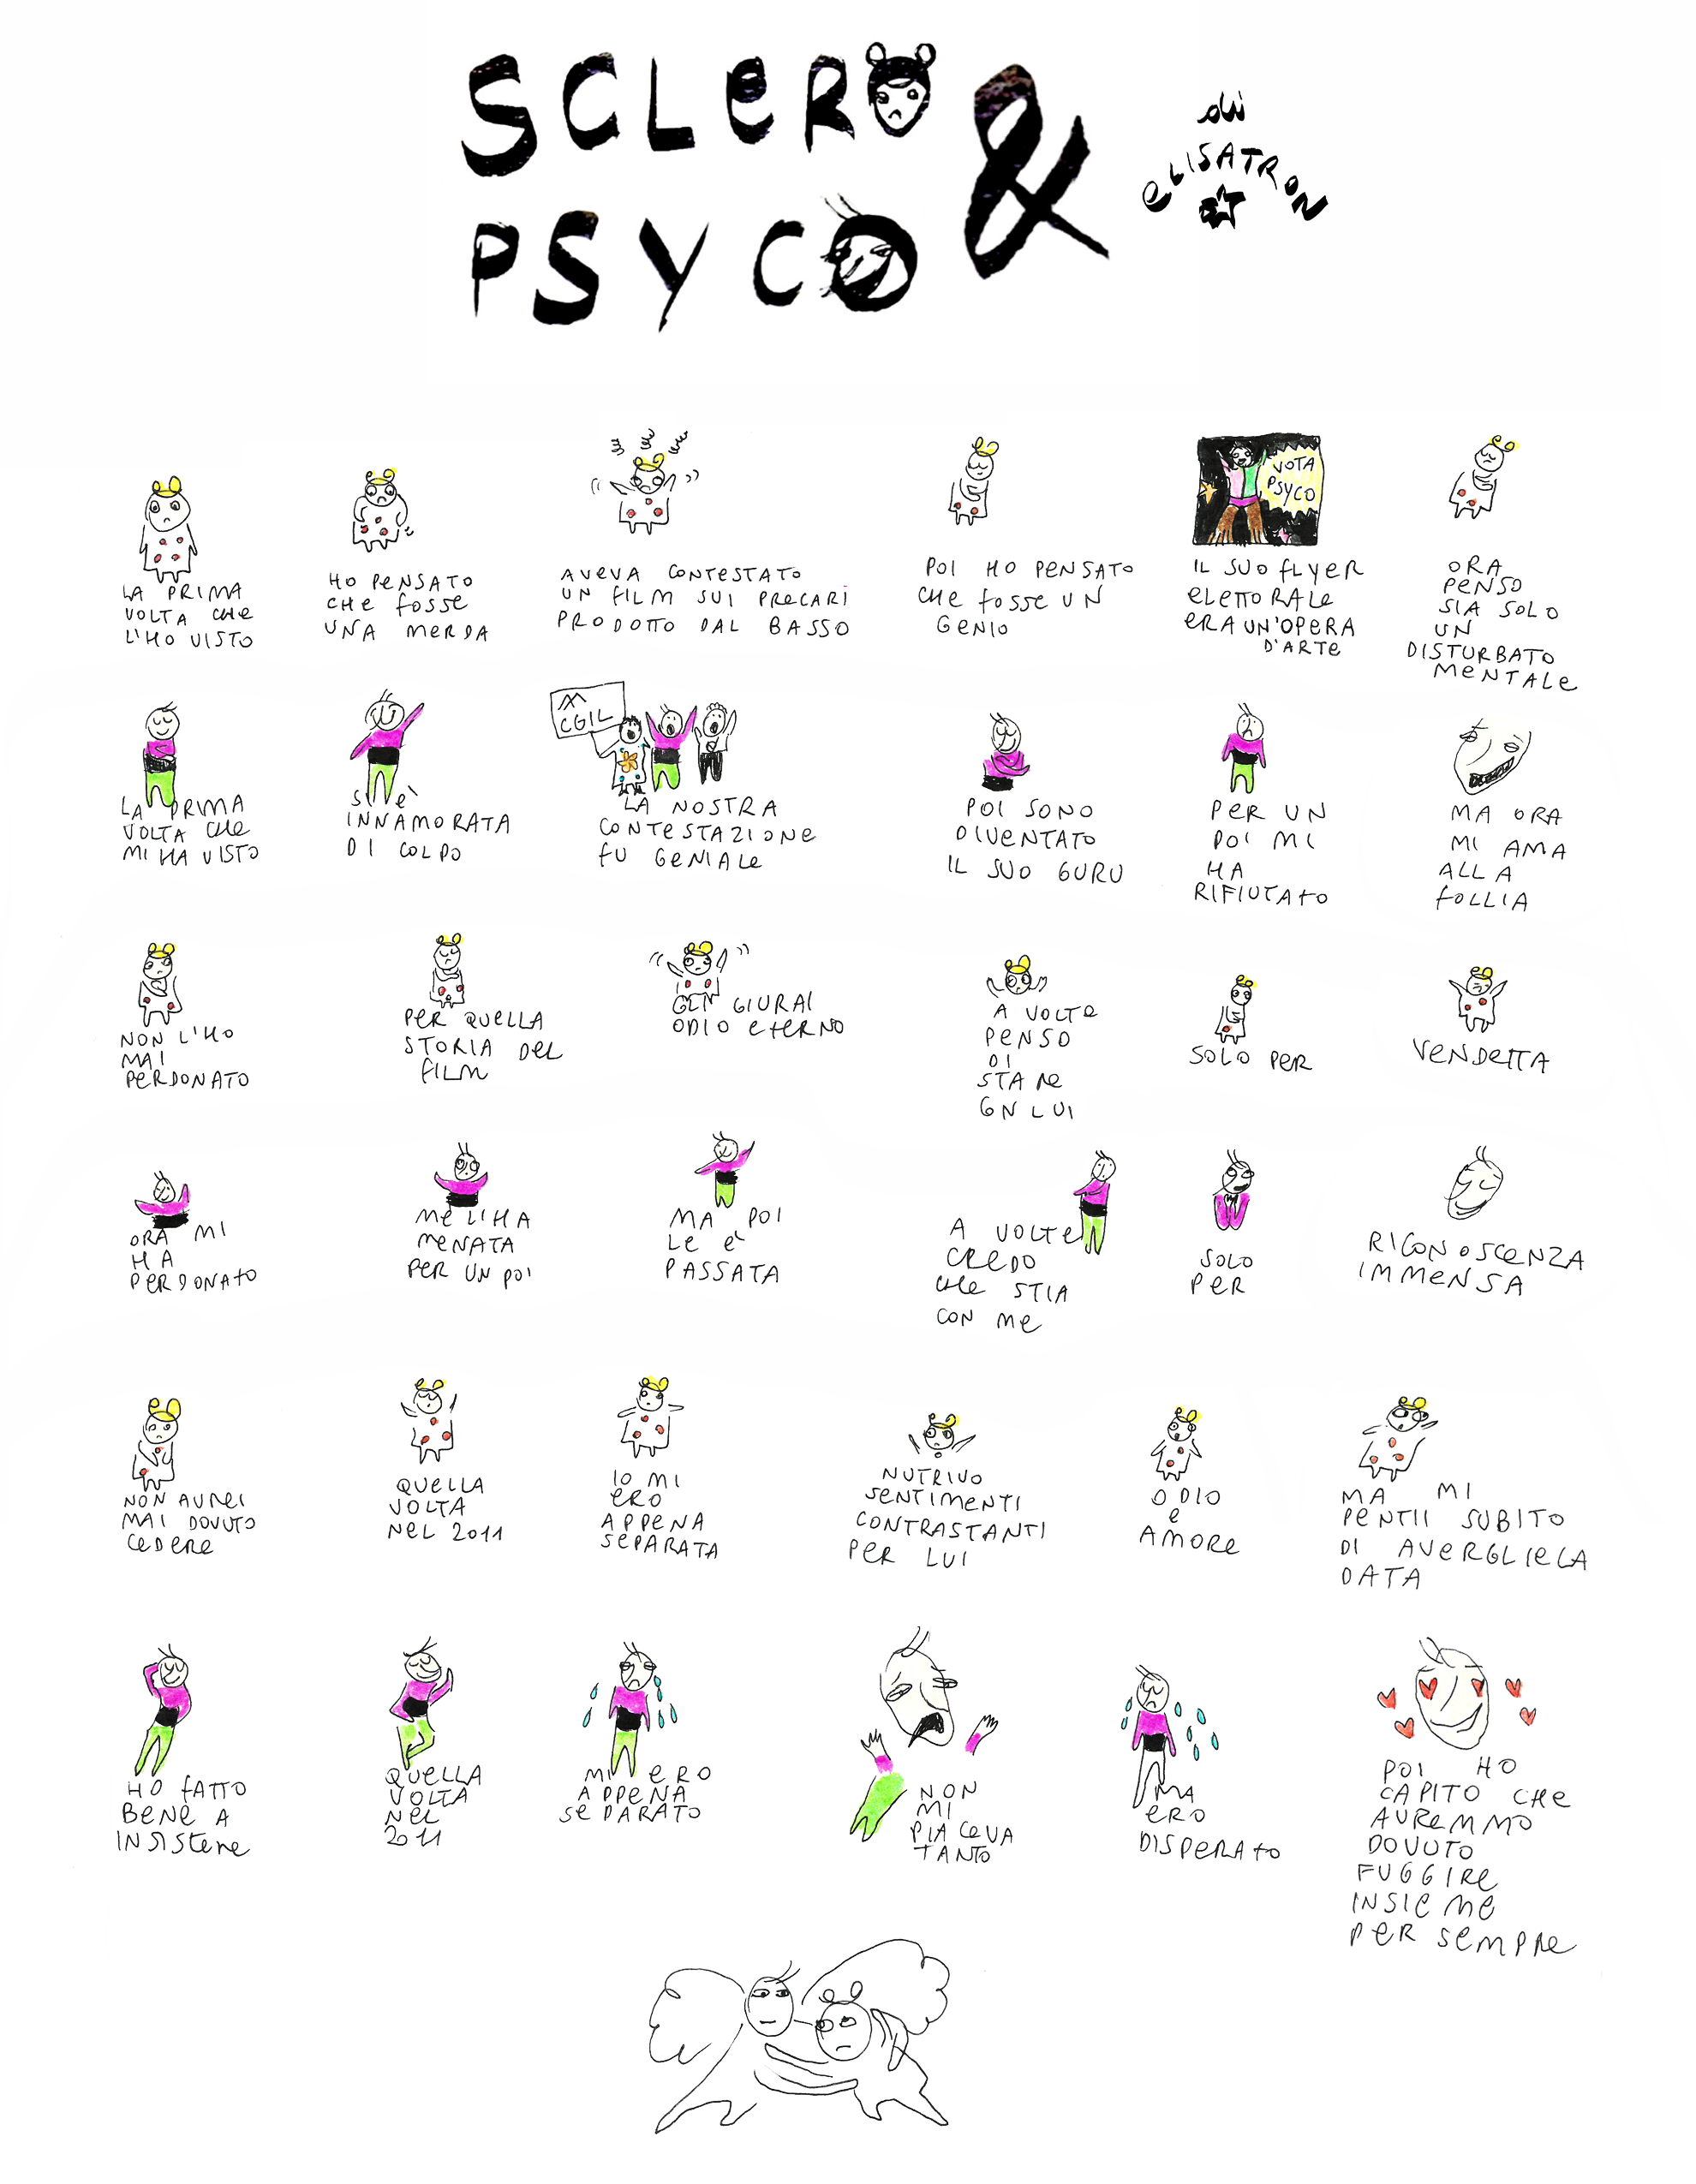 SCLERO
&
PSYCO
di
ELISATRON
LA PRIMA
VOLTA CHE
L'HO VISTO
HO PENSATO
CHE FOSSE
UNA MERDA
AVEVA CONTESTATO
UN FILM SUI PRECARI
PRODOTTO DAL BASSO
POI HO PENSATO
CHE FOSSE UN
GENIO
VOTA
PSYCO
IL SUO FLYER
ELETTORALE
ERA UN'OPERA
D'ARTE
ORA
PENSO
SIA SOLO
UN
DISTURBATO
MENTALE
LA PRIMA
VOLTA CHE
MI HA VISTO
SI È
INNAMORATA
DI COLPO
CGIL
LA NOSTRA
CONTESTAZIONE
FU GENIALE
POI SONO
DIVENTATO
IL SUO GURU
PER UN
POI MI
HA
RIFIUTATO
MA ORA
MI AMA
ALLA
FOLLIA
NON L'HO
MAI
PERDONATO
PER QUELLA
STORIA DEL
FILM
GLI GIURAI
ODIO ETERNO
A VOLTE
PENSO
DI
STARE
CON LUI
SOLO PER
VENDETTA
ORA MI
HA
PERDONATO
ME L'HA
MENATA
PER UN POI
MA POI
LE È
PASSATA
A VOLTE
CREDO
CHE STIA
CON ME
SOLO
PER
RICONOSCENZA
IMMENSA
NON AVREI
MAI DOVUTO
CEDERE
QUELLA
VOLTA
NEL 2011
IO MI
ERO
APPENA
SEPARATA
NUTRIVO
SENTIMENTI
CONTRASTANTI
PER LUI
ODIO
E
AMORE
MA MI
PENTII SUBITO
DI AVERGLIELA
DATA
HO FATTO
BENE A
INSISTERE
QUELLA
VOLTA
NEL
2011
MI ERO
APPENA
SEPARATO
NON
MI
PIACEVA
TANTO
MA
ERO
DISPERATO
POI HO
CAPITO CHE
AVREMMO
DOVUTO
FUGGIRE
INSIEME
PER SEMPRE